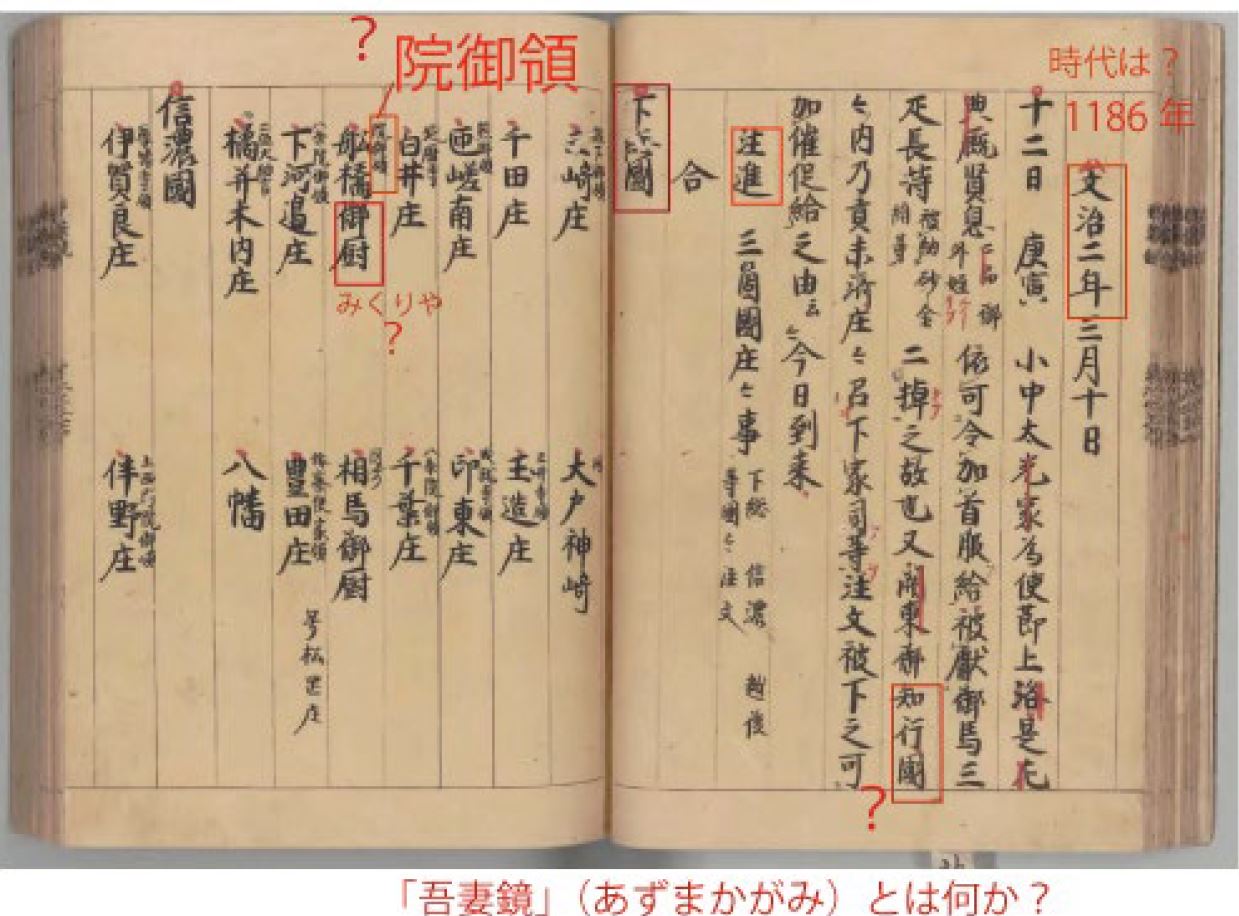 時代は？
1186 年
文治二年三月十日
十二日　庚寅　小中太光家為使節上洛是左
典厩賢息 二品御外姪 依可令加首服給被獻御馬三
疋長持 被納砂金絹等 二棹之故也又關東御知行國
々内乃貢未済庄々召下家司等注文被下之可
加催促給之由云々今日到来
注進　三箇國庄々事 下総　信濃　越後 等國々注文
合
下総國
？
三崎庄　大戸神崎
千田庄　玉造庄
匝嵯南庄　印東庄
白井庄　千葉庄 八条院御領
船橋御厨 院御領　相馬御厨
下河邊庄 八条院御領　豊田庄 号松岡庄
橘并木内庄　八幡
信濃國
伊賀良庄　伴野庄 上西門院御領
？
院御領
みくりや
？
「吾妻鏡」（あずまかがみ）とは何か？